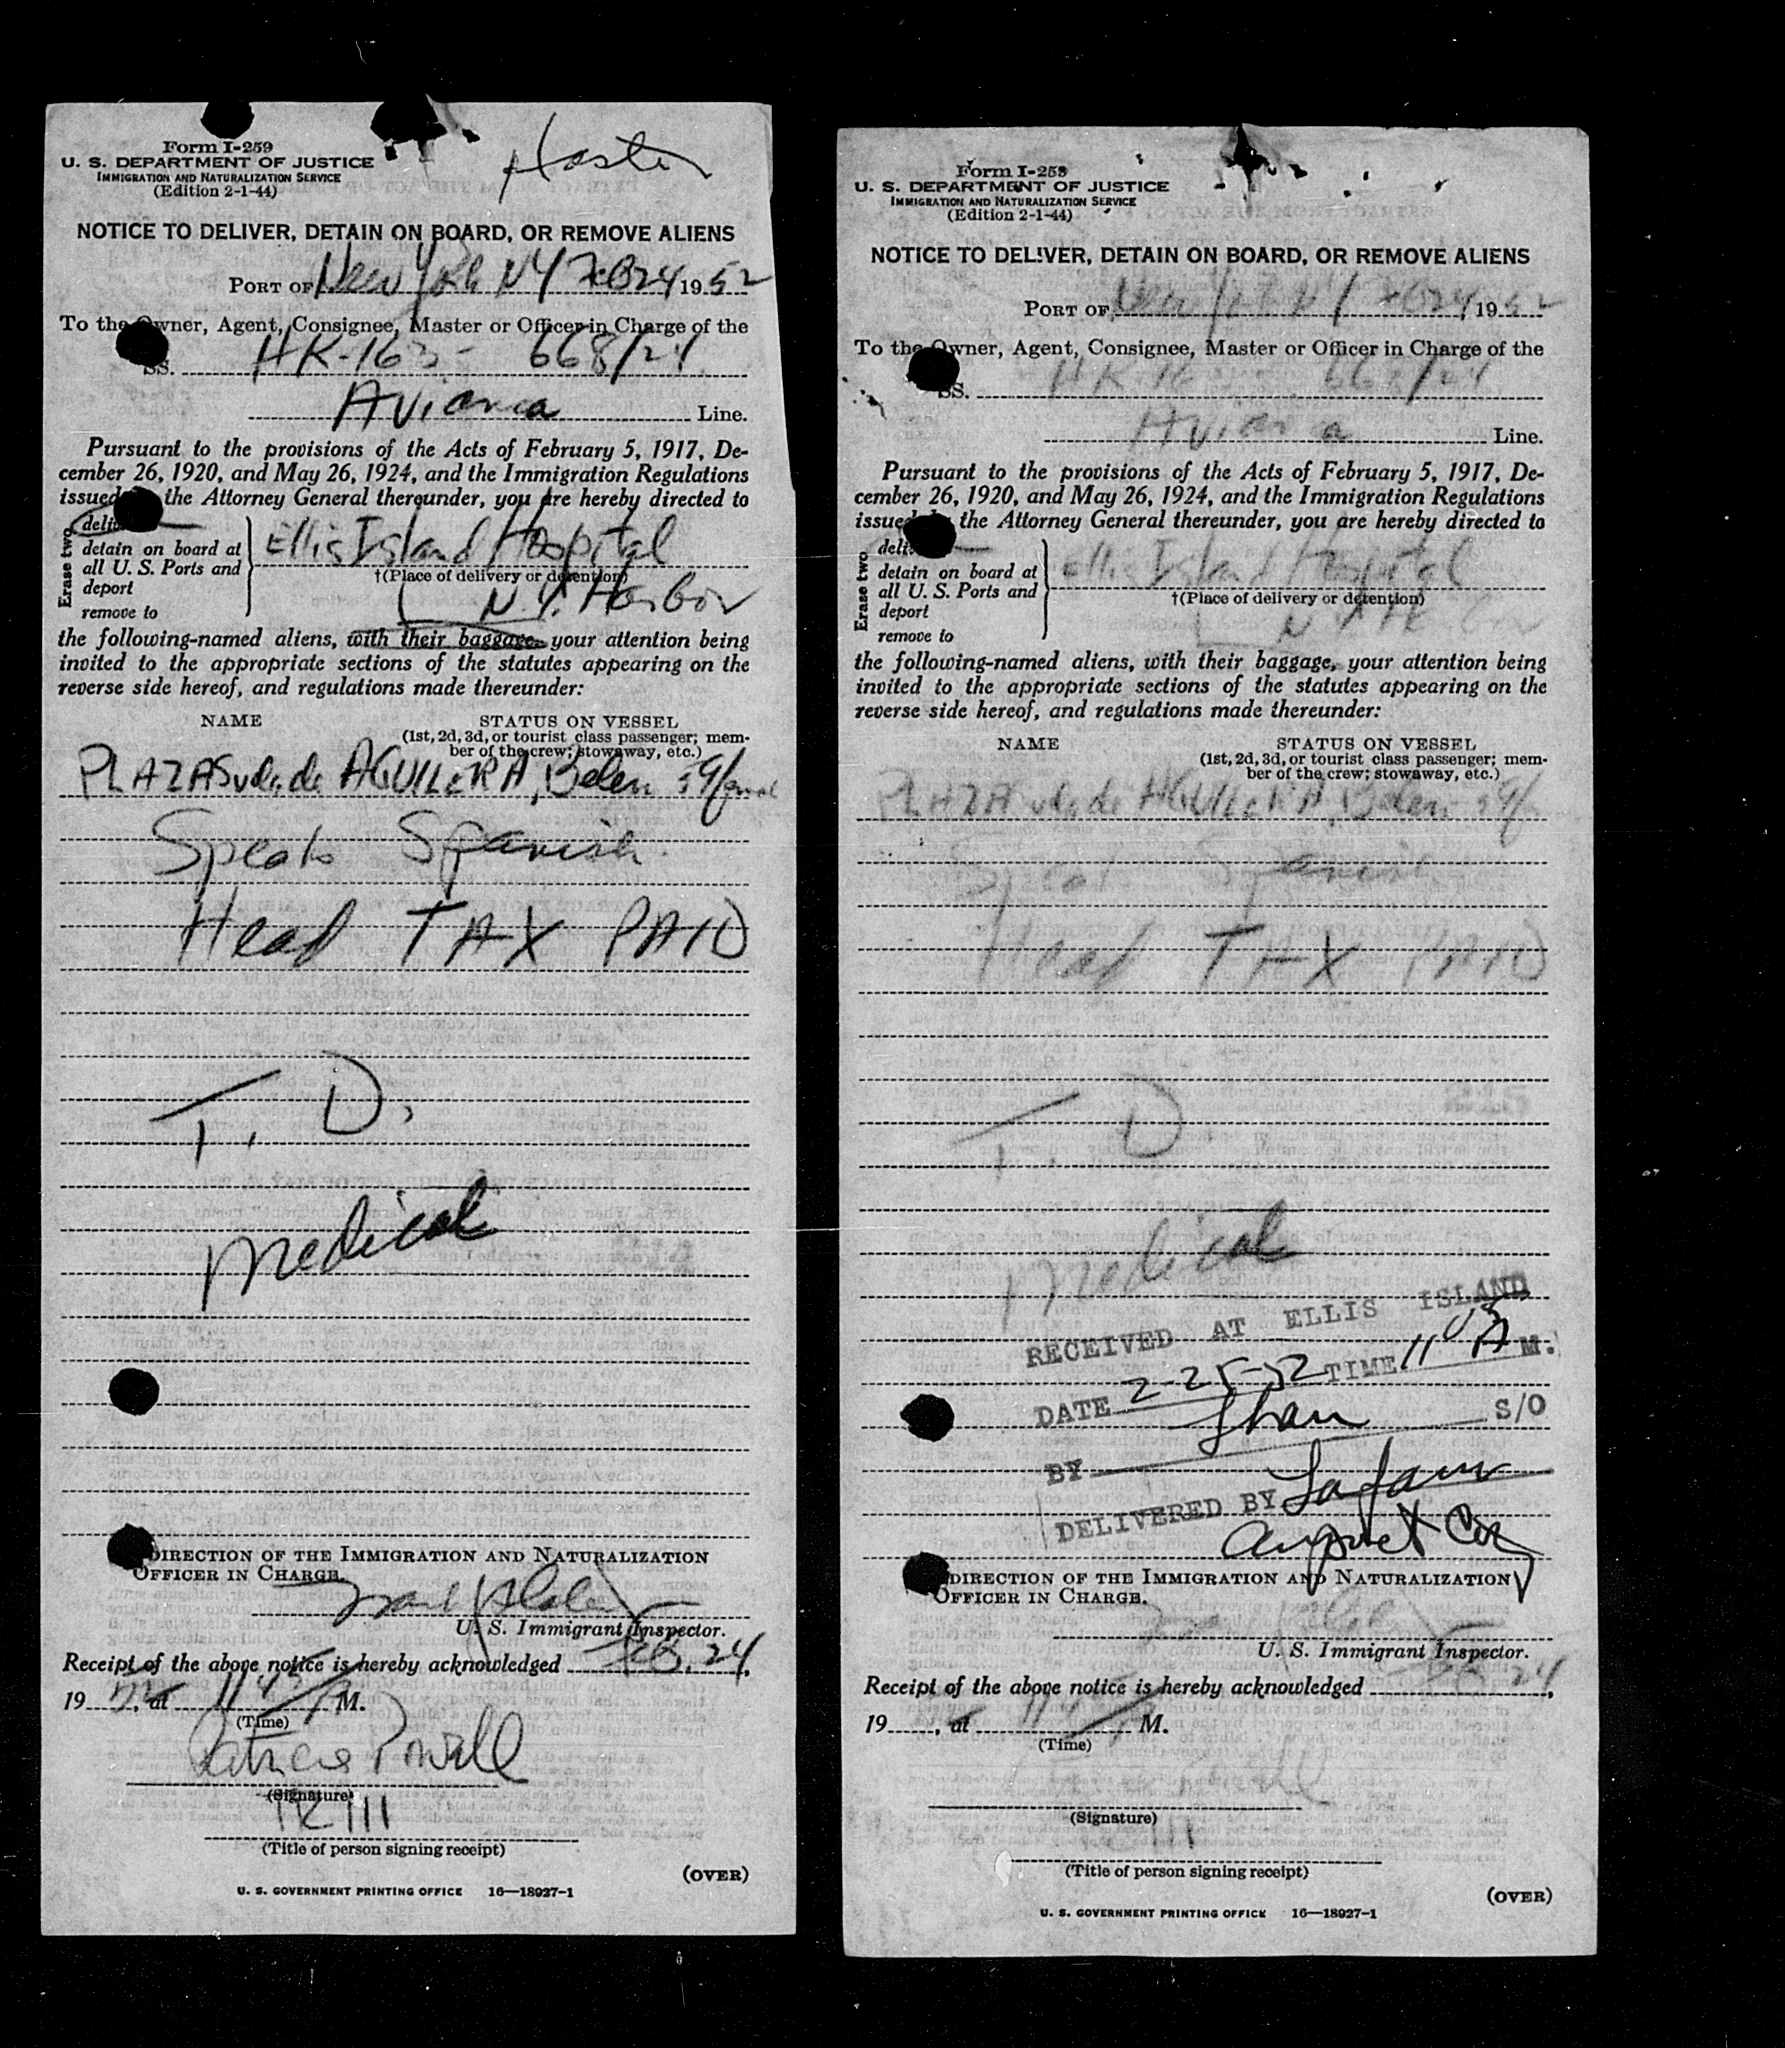 Form I-259
U. S. DEPARTMENT OF JUSTICE
IMMIGRATION AND NATURALIZATION SERVICE
(Edition 2-1-44)
NOTICE TO DELIVER, DETAIN ON BOARD, OR REMOVE ALIENS
PORT OF New York NY FEB 24 1952
To the Owner, Agent, Consignee, Master or Officer in Charge of the
SS. HK-163- 668/24
Avianca Line.
Pursuant to the provisions of the Acts of February 5, 1917, De-
cember 26, 1920, and May 26, 1924, and the Immigration Regulations
issued the Attorney General thereunder, you are hereby directed to
Erase two
deli
detain on board at
all U. S. Ports and
deport
remove to
Ellis Island Hospital
†(Place of delivery or detention)
N.Y. Harbor
the following-named aliens, with their baggage, your attention being
invited to the appropriate sections of the statutes appearing on the
reverse side hereof, and regulations made thereunder:
NAME STATUS ON VESSEL
(1st, 2d, 3d, or tourist class passenger; mem-
ber of the crew; stowaway, etc.)
PLAZAS vda. de AGUILERA, Belen
Speaks Spanish.
Head TAX PAID
T. D.
medical
DIRECTION OF THE IMMIGRATION AND NATURALIZATION
OFFICER IN CHARGE.
U. S. Immigrant Inspector.
Receipt of the above notice is hereby acknowledged Feb. 24,
19 52, at 11 45 M.
(Time)
Patricia Powell
(Signature)
(Title of person signing receipt)
(OVER)
U. S. GOVERNMENT PRINTING OFFICE 16—18927-1
Form I-259
U. S. DEPARTMENT OF JUSTICE
IMMIGRATION AND NATURALIZATION SERVICE
(Edition 2-1-44)
NOTICE TO DELIVER, DETAIN ON BOARD, OR REMOVE ALIENS
PORT OF New York NY FEB 24, 1952
To the Owner, Agent, Consignee, Master or Officer in Charge of the
SS. HK-16 668/24
Avianca Line.
Pursuant to the provisions of the Acts of February 5, 1917, De-
cember 26, 1920, and May 26, 1924, and the Immigration Regulations
issued by the Attorney General thereunder, you are hereby directed to
Erase two
deli
detain on board at
all U. S. Ports and
deport
remove to
Ellis Island Hospital
†(Place of delivery or detention)
N Y Harbor
the following-named aliens, with their baggage, your attention being
invited to the appropriate sections of the statutes appearing on the
reverse side hereof, and regulations made thereunder:
NAME STATUS ON VESSEL
(1st, 2d, 3d, or tourist class passenger; mem-
ber of the crew; stowaway, etc.)
PLAZAS vda. de AGUILERA, Belen
Speaks Spanish
Head TAX PAID
T. D
medical
RECEIVED AT ELLIS ISLAND
DATE 2-25-52 TIME 11 05 A M.
S/O
BY
DELIVERED BY
DIRECTION OF THE IMMIGRATION AND NATURALIZATION
OFFICER IN CHARGE.
U. S. Immigrant Inspector.
Receipt of the above notice is hereby acknowledged Feb 24,
19 , at 11 45 M.
(Time)
(Signature)
(Title of person signing receipt)
(OVER)
U. S. GOVERNMENT PRINTING OFFICE 16—18927-1